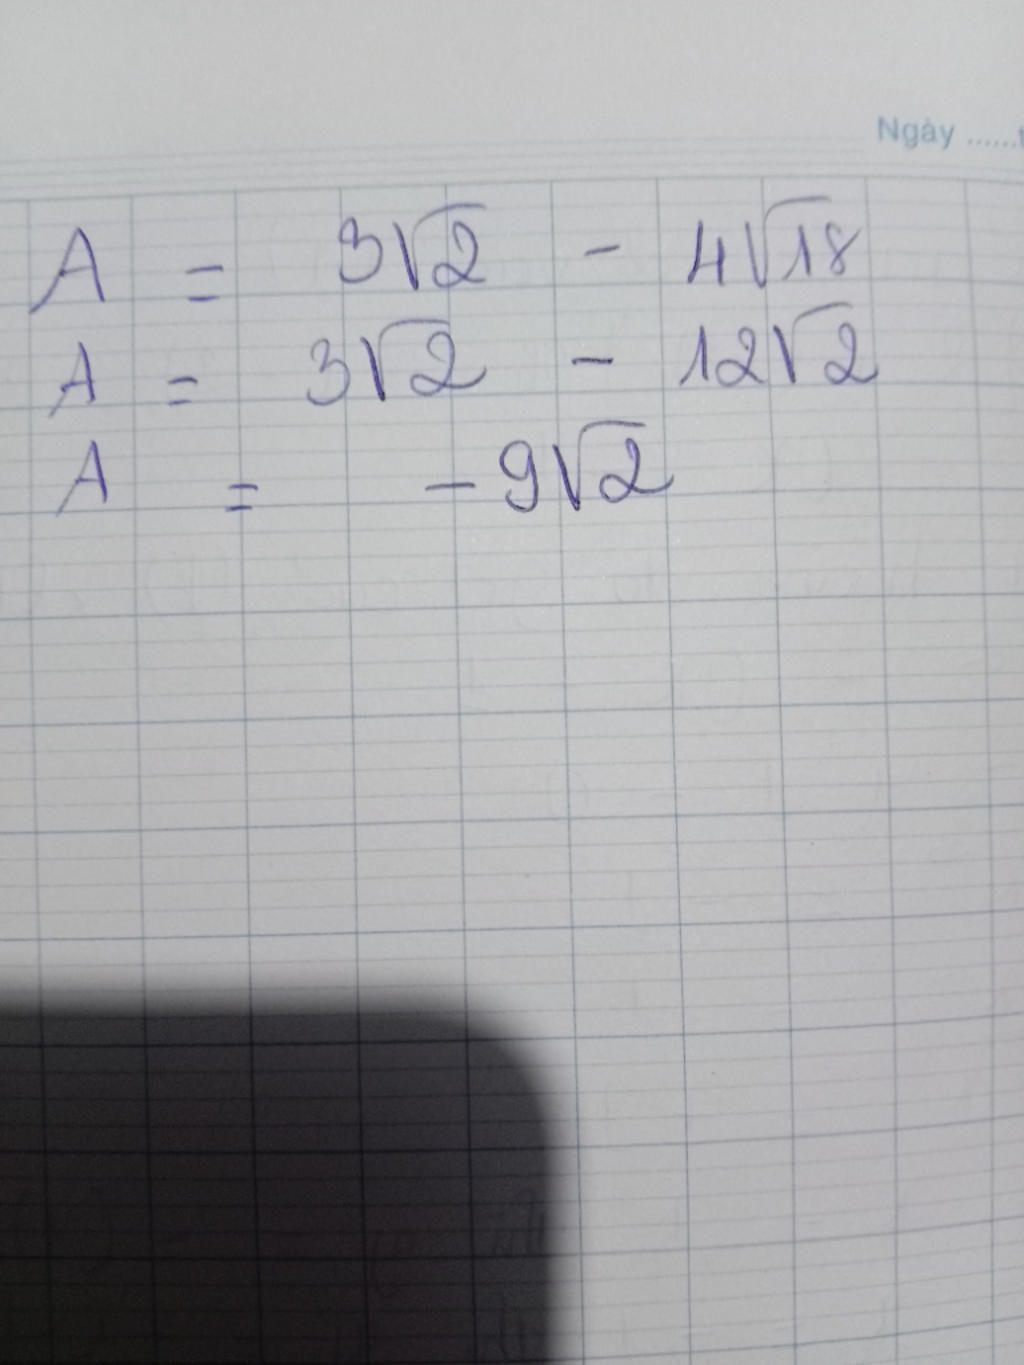 Ngày ......t
A = 3√2 - 4√18
A = 3√2 - 12√2
A = -9√2